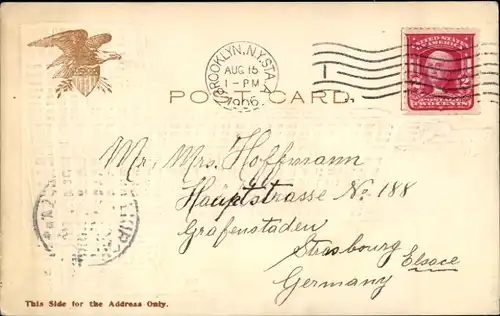 BROOKLYN, N.Y. STA. A
AUG 15
1-PM
1906
UNITED STATES
OF AMERICA
POSTAGE
2 2
TWO CENTS
POST CARD
Mr. Mrs. Hoffmann
Hauptstrasse No. 188
Grafenstaden
Strasbourg
Elsace
Germany
This Side for the Address Only.